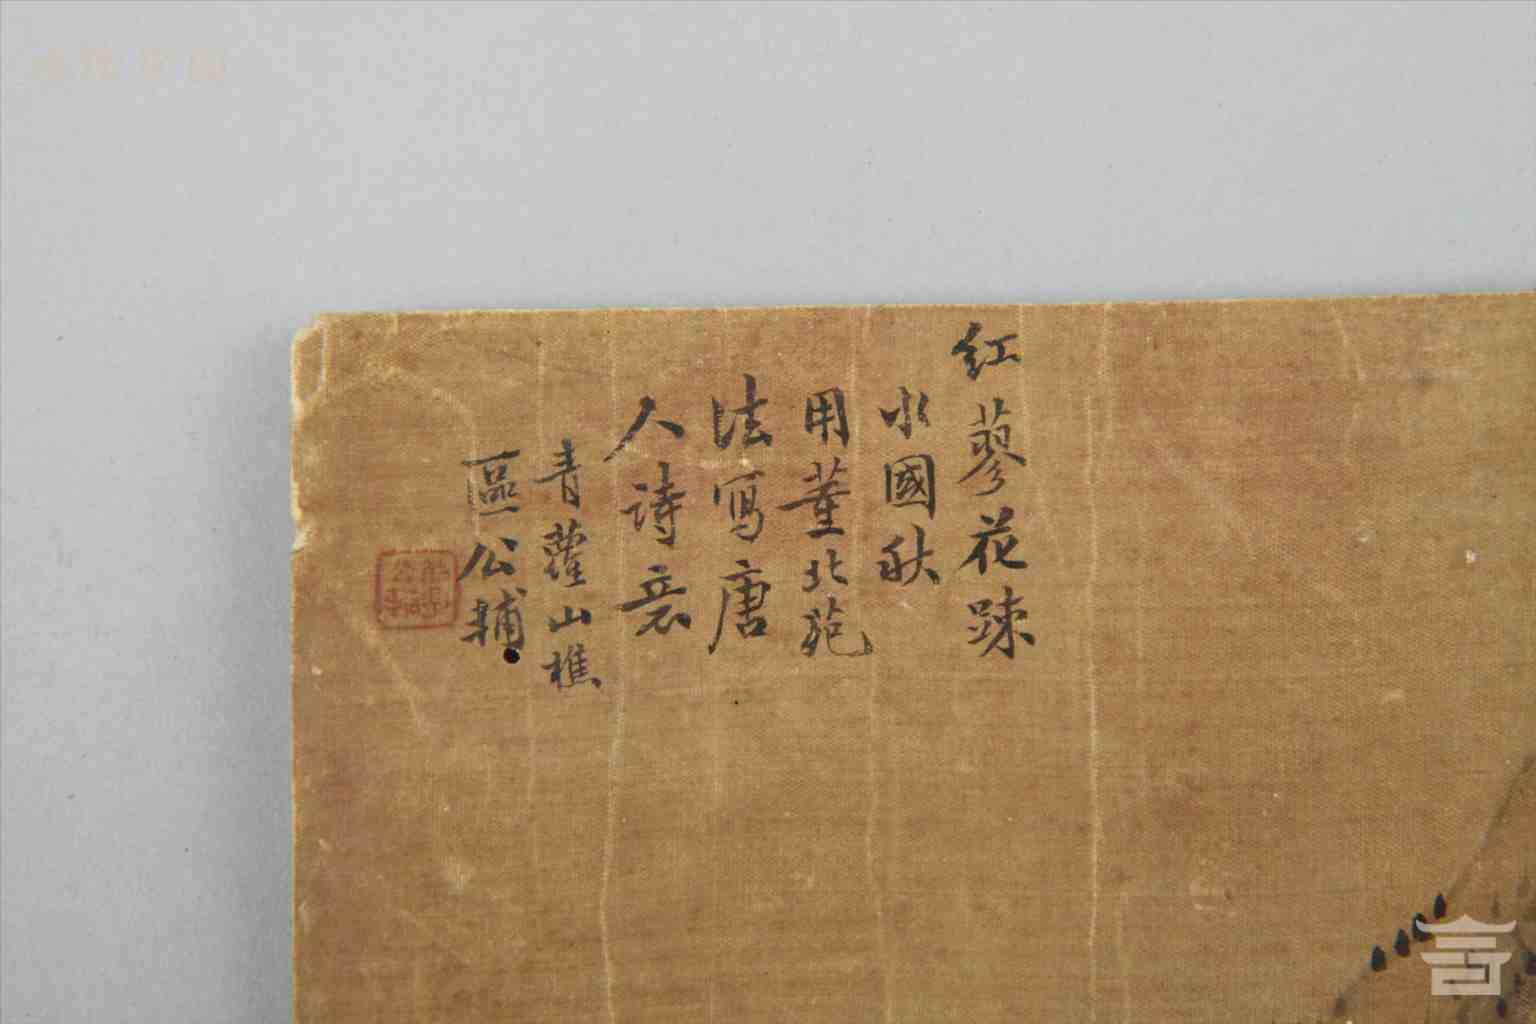 紅蓼花踈
水國秋
用董北苑
法寫唐
人詩意
青蘿山樵
區公輔